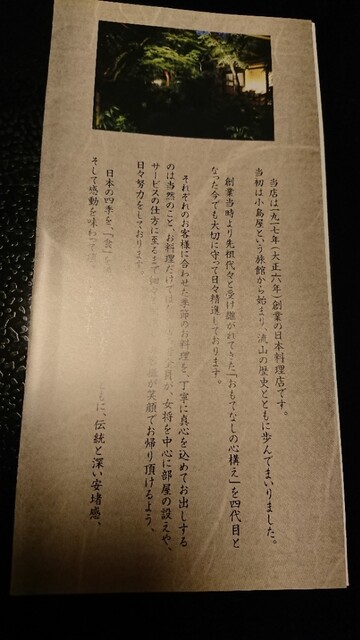 当店は一九一七年(大正六年)創業の日本料理店です。
当初は小島屋という旅館から始まり、流山の歴史とともに歩んでまいりました。
創業当時より先祖代々と受け継がれてきた「おもてなしの心構え」を四代目と
なった今でも大切に守って日々精進しております。
それぞれのお客様に合わせた季節のお料理を、丁寧に真心を込めてお出しする
のは当然のこと、お料理だけではな 員が、女将を中心に部屋の設えや、
サービスの仕方に至るまで 様が笑顔でお帰り頂けるよう、
日々努力をしております。
日本の四季を、「食」を ともに、伝統と深い安堵感、
そして感動を味わって